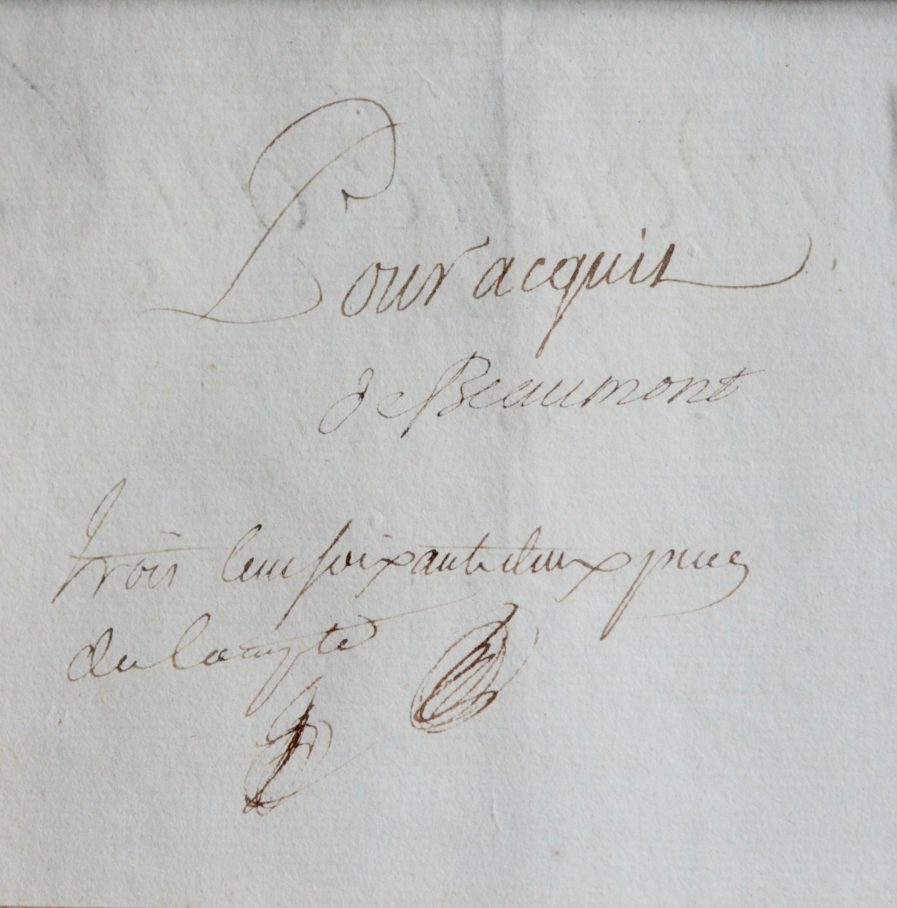 Pour acquit
de Beaumont
trois cent soixante deux piece
du compte